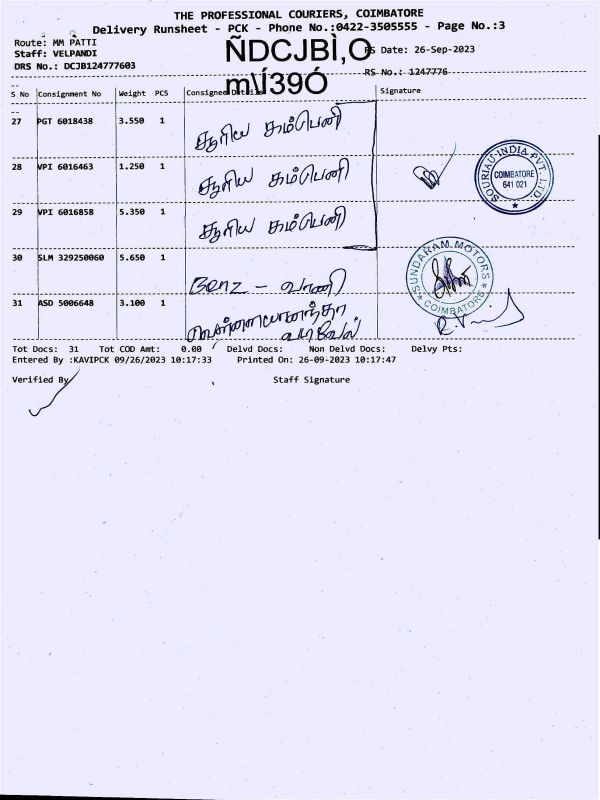 THE PROFESSIONAL COURIERS, COIMBATORE
Delivery Runsheet - PCK - Phone No.:0422-3505555 - Page No.:3
Route: MM PATTI
Staff: VELPANDI
DRS No.: DCJB124777603
ÑDCJBÌ,O
m\Í39Ó
RS Date: 26-Sep-2023
RS No.: 1247776
S No Consignment No Weight PCS Consignee Details Signature
27 PGT 6018438 3.550 1 சூரிய கம்பெனி
28 VPI 6016463 1.250 1 சூரிய கம்பெனி
SOURIAU-INDIA PVT. LTD.
COIMBATORE
641 021
29 VPI 6016858 5.350 1 சூரிய கம்பெனி
30 SLM 329250060 5.650 1 Benz - வாணி
SUNDARAM MOTORS
COIMBATORE
31 ASD 5006648 3.100 1
Tot Docs: 31 Tot COD Amt: 0.00 Delvd Docs: Non Delvd Docs: Delvy Pts:
Entered By :KAVIPCK 09/26/2023 10:17:33 Printed On: 26-09-2023 10:17:47
Verified By Staff Signature